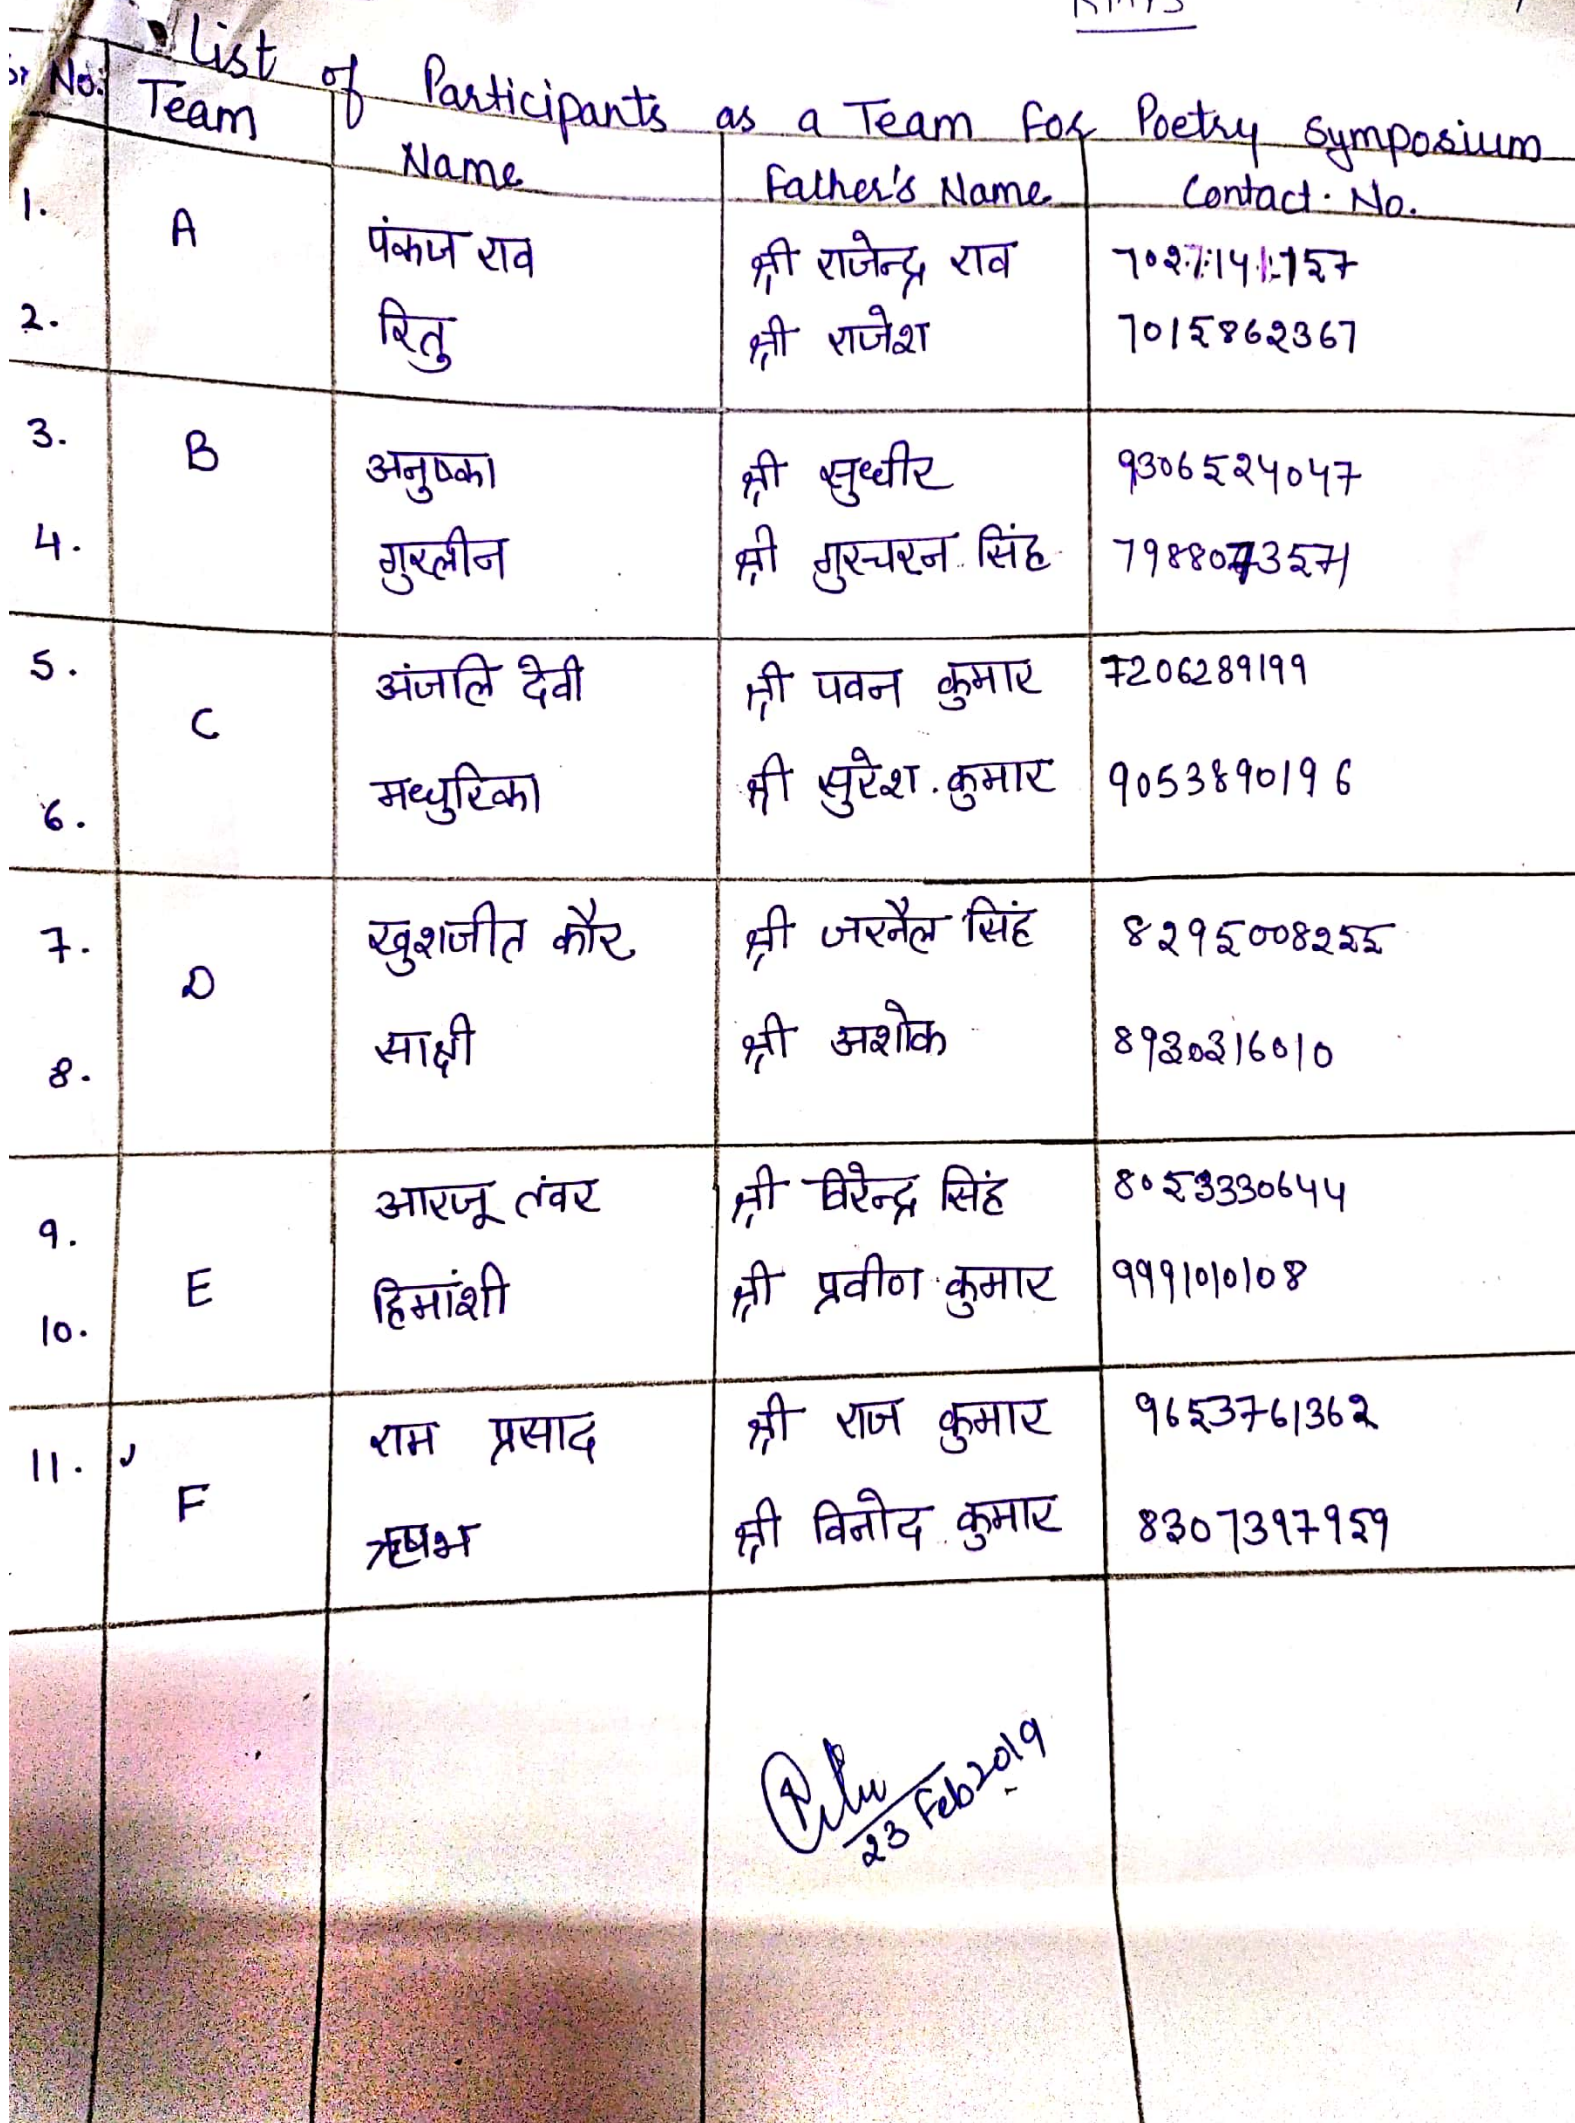 List of Participants as a Team for Poetry Symposium
Sr No. Team Name Father's Name Contact. No.
1. A पंकज राव श्री राजेन्द्र राव 7027141157
2. रितु श्री राजेश 7015862367
3. B अनुष्का श्री सुधीर 9306524047
4. गुरलीन श्री गुरचरन सिंह
5. C अंजलि देवी श्री पवन कुमार 7206289199
6. मधुरिका श्री सुरेश कुमार 9053890196
7. D खुशजीत कौर श्री जरनैल सिंह 8295008255
8. साक्षी श्री अशोक 8930316010
9. E आरजू तंवर श्री विरेन्द्र सिंह 8053330644
10. हिमांशी श्री प्रवीण कुमार 9991010108
11. F राम प्रसाद श्री राज कुमार 9653761362
ऋषभ श्री विनोद कुमार 8307397959
23 Feb 2019